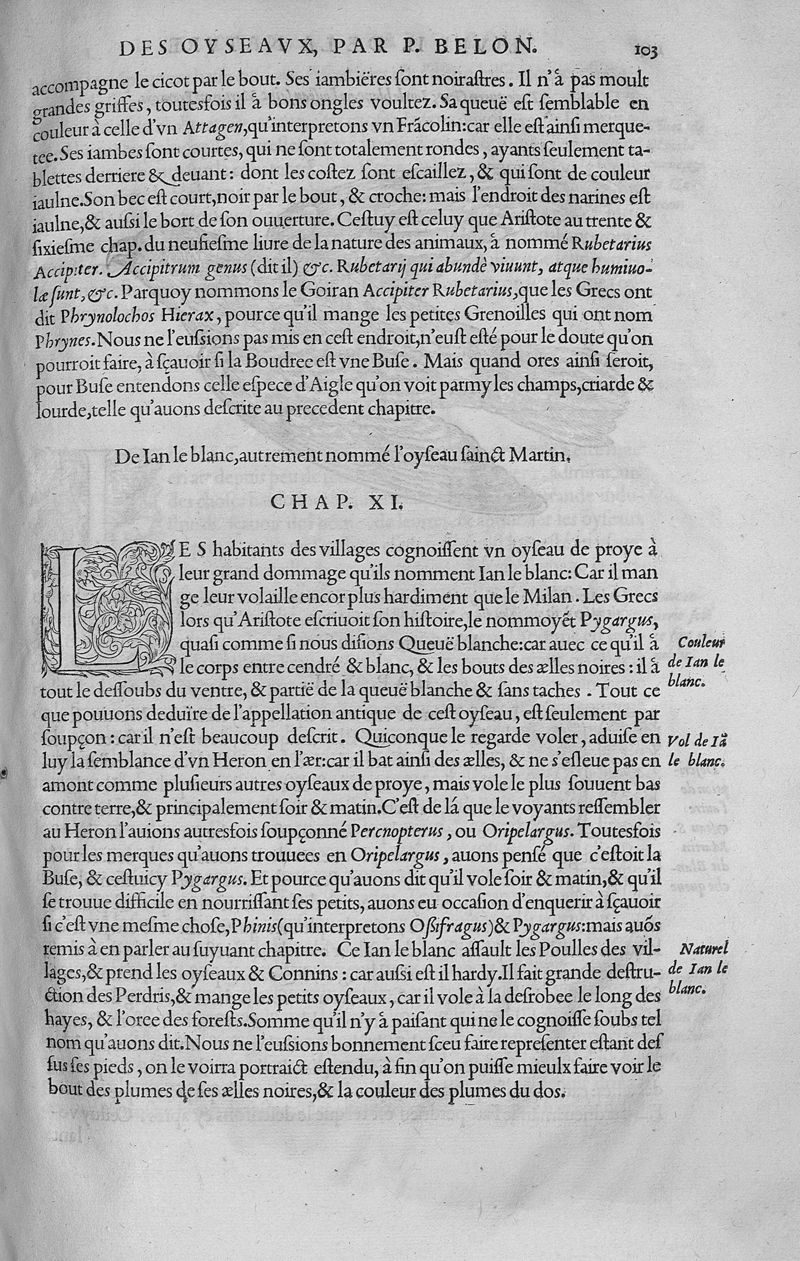 DES OYSEAVX, PAR P. BELON. 103
accompagne le cicot par le bout. Ses iambiëres ſont noiraſtres. Il n'à pas moult
grandes griffes, toutesfois il à bons ongles voultez. Sa queuë eſt ſemblable en
couleur à celle d'vn Attagen, qu'interpretons vn Frãcolin: car elle eſt ainſi merque-
tee. Ses iambes ſont courtes, qui ne ſont totalement rondes, ayants ſeulement ta-
blettes derriere & deuant: dont les coſtez ſont eſcaillez, & qui ſont de couleur
iaulne. Son bec eſt court, noir par le bout, & croche: mais l'endroit des narines eſt
iaulne, & auſsi le bort de ſon ouuerture. Ceſtuy eſt celuy que Ariſtote au trente &
ſixieſme chap. du neufieſme liure de la nature des animaux, à nommé Rubetarius
Accipiter. Accipitrum genus (dit il) &c. Rubetarij qui abundè viuunt, atque humiuo-
læ ſunt, &c. Parquoy nommons le Goiran Accipiter Rubetarius, que les Grecs ont
dit Phrynolochos Hierax, pource qu'il mange les petites Grenoilles qui ont nom
Phrynes. Nous ne l'euſsions pas mis en ceſt endroit, n'euſt eſté pour le doute qu'on
pourroit faire, à ſçauoir ſi la Boudree eſt vne Buſe. Mais quand ores ainſi ſeroit,
pour Buſe entendons celle eſpece d'Aigle qu'on voit parmy les champs, criarde &
lourde, telle qu'auons deſcrite au precedent chapitre.
De Ian le blanc, autrement nommé l'oyſeau ſainct Martin.
CHAP. XI.
LES habitants des villages cognoiſſent vn oyſeau de proye à
leur grand dommage qu'ils nomment Ian le blanc: Car il man
ge leur volaille encor plus hardiment que le Milan. Les Grecs
lors qu'Ariſtote eſcriuoit ſon hiſtoire, le nommoyẽt Pygargus,
quaſi comme ſi nous diſions Queuë blanche: car auec ce qu'il à
le corps entre cendré & blanc, & les bouts des ælles noires: il à
tout le deſſoubs du ventre, & partië de la queuë blanche & ſans taches. Tout ce
que pouuons deduïre de l'appellation antique de ceſt oyſeau, eſt ſeulement par
ſoupçon: car il n'eſt beaucoup deſcrit. Quiconque le regarde voler, aduiſe en
luy la ſemblance d'vn Heron en l'ær: car il bat ainſi des ælles, & ne s'eſleue pas en
amont comme pluſieurs autres oyſeaux de proye, mais vole le plus ſouuent bas
contre terre, & principalement ſoir & matin. C'eſt de là que le voyants reſſembler
au Heron l'auions autresfois ſoupçonné Percnopterus, ou Oripelargus. Toutesfois
pour les merques qu'auons trouuees en Oripelargus, auons penſé que c'eſtoit la
Buſe, & ceſtuicy Pygargus. Et pource qu'auons dit qu'il vole ſoir & matin, & qu'il
ſe trouue difficile en nourriſſant ſes petits, auons eu occaſion d'enquerir à ſçauoir
ſi c'eſt vne meſme choſe, Phinis (qu'interpretons Oſsifragus) & Pygargus: mais auõs
remis à en parler au ſuyuant chapitre. Ce Ian le blanc aſſault les Poulles des vil-
lages, & prend les oyſeaux & Connins: car auſsi eſt il hardy. Il fait grande deſtru-
ction des Perdris, & mange les petits oyſeaux, car il vole à la deſrobee le long des
hayes, & l'oree des foreſts. Somme qu'il n'y à paiſant qui ne le cognoiſſe ſoubs tel
nom qu'auons dit. Nous ne l'euſsions bonnement ſceu faire repreſenter eſtant deſ
ſus ſes pieds, on le voirra portraict eſtendu, à fin qu'on puiſſe mieulx faire voir le
bout des plumes de ſes ælles noires, & la couleur des plumes du dos.
Couleur
de Ian le
blanc.
Vol de Iã
le blanc.
Naturel
de Ian le
blanc.